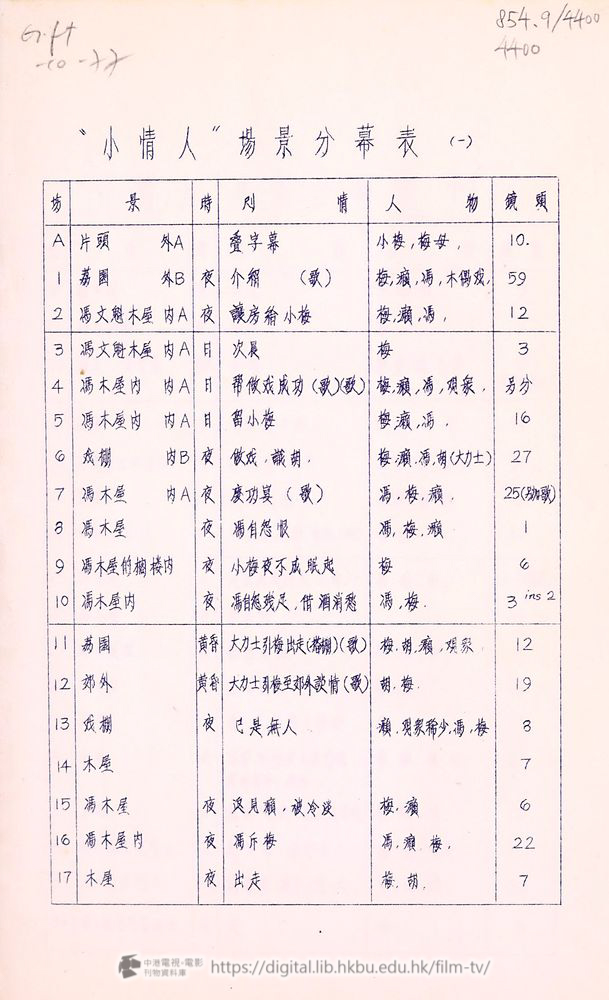 Gift
854.9/4400
4400
"小情人"場景分幕表 (一)
場 景 時 別 情 人 物 鏡頭
A 片頭 外A 疊字幕 小梅,梅母, 10.
1 荔園 外B 夜 介紹 (歌) 梅,癩,馮,木偶戏, 59
2 馮文魁木屋 内A 夜 讓房給小梅 梅,癩,馮, 12
3 馮文魁木屋 内A 日 次晨 梅 3
4 馮木屋内 内A 日 帮做戏成功(歌)(歌) 梅,癩,馮,观衆, 另分
5 馮木屋内 内A 日 留小梅 梅,癩,馮. 16
6 戏棚 内B 夜 做戏,識胡. 梅,癩,馮,胡(大力士) 27
7 馮木屋 内A 夜 慶功宴 (歌) 馮,梅,癩. 25(另加歌)
8 馮木屋 夜 馮自怨恨 馮,梅,癩 1
9 馮木屋的閣楼内 夜 小梅夜不成眠起 梅 6
10 馮木屋内 夜 馮自怨残足,借酒消愁 馮,梅. 3 ins 2
11 荔園 黄昏 大力士引梅出走(搭棚)(歌) 梅.胡.癩,观衆 12
12 郊外 黄昏 大力士引梅至郊外談情(歌) 胡,梅. 19
13 戏棚 夜 已是無人 癩,观衆稀少,馮,梅 8
14 木屋 7
15 馮木屋 夜 返見癩,被冷淡 梅,癩 6
16 馮木屋内 夜 馮斥梅 馮,癩 梅, 22
17 木屋 夜 出走 梅,胡. 7
中港電視·電影
刊物資料庫
https://digital.lib.hkbu.edu.hk/film-tv/